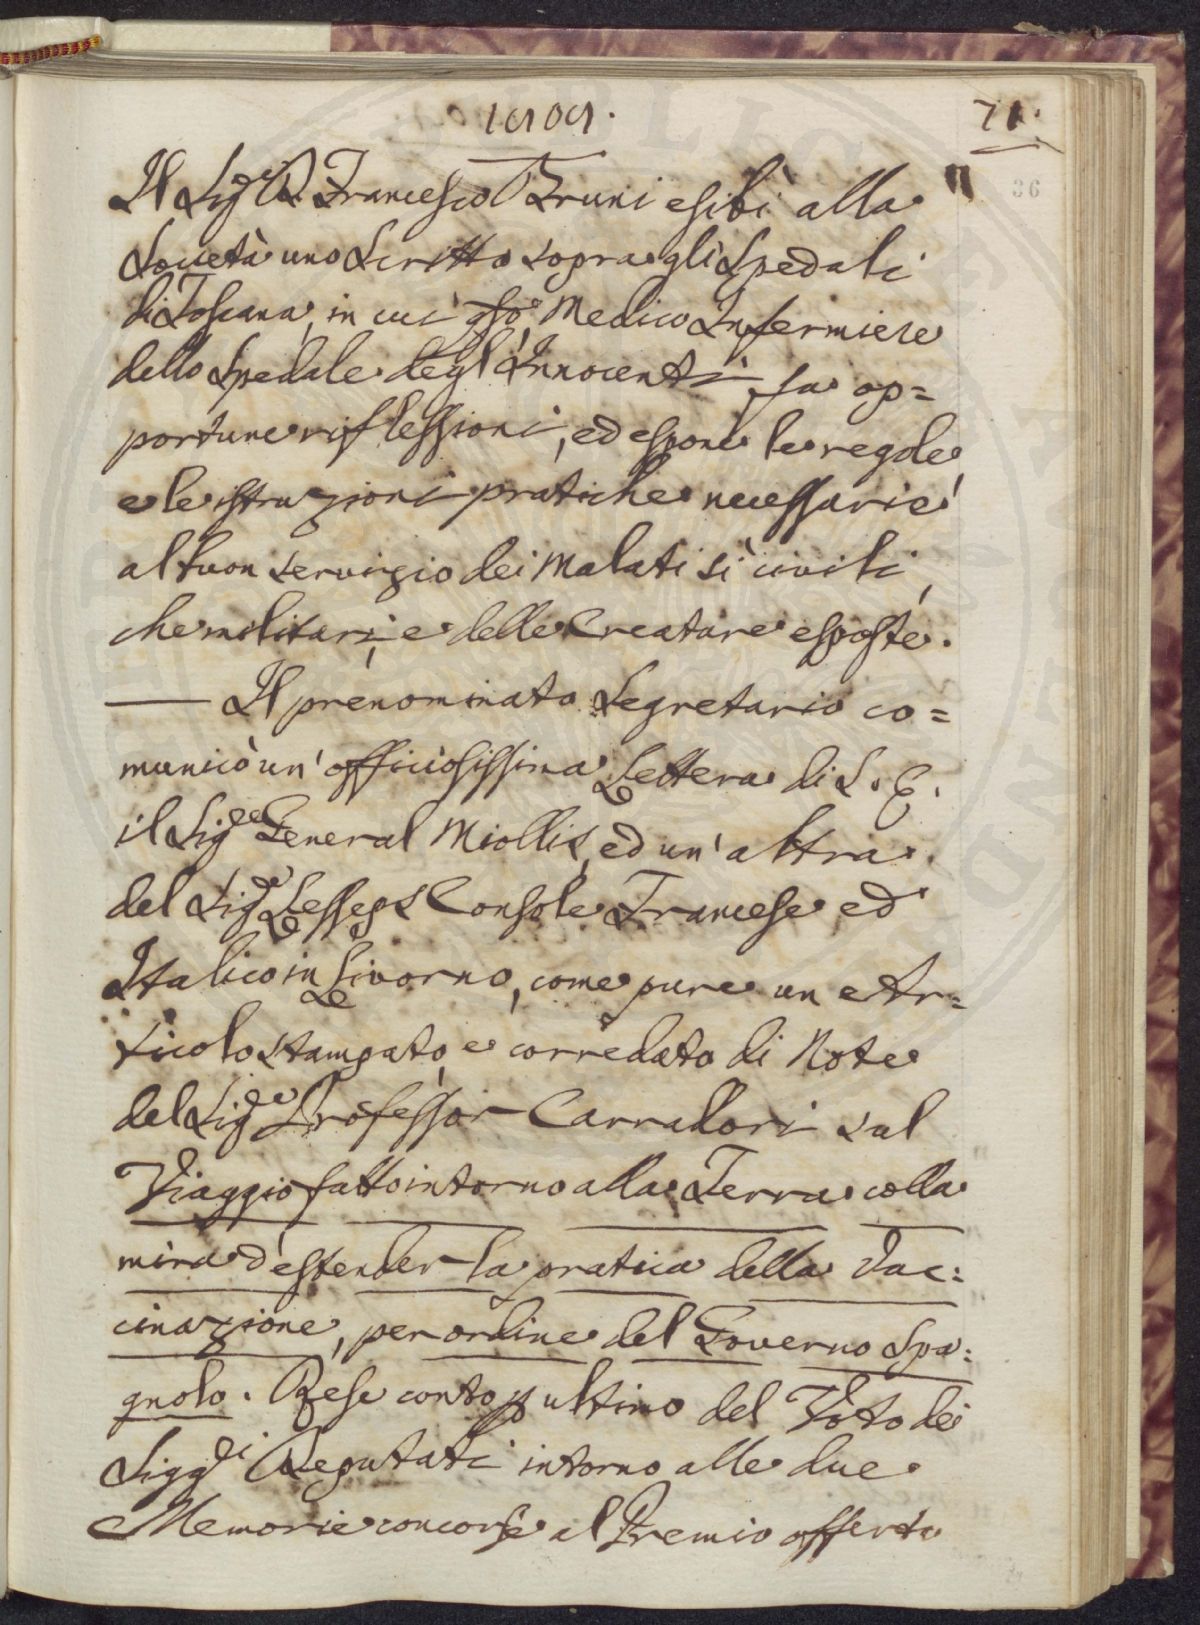 1809.
71.
36
Il Sigr. D. Francesco Bruni esibì alla
Società uno Scritto sopra gli Spedali
di Toscana, in cui qsto Medico Infermiere
dello Spedale degl'Innocenti, fa op=
portune riflessioni, ed espone le regole
e le istruzioni pratiche necessarie
al buon servizio dei Malati sì civili,
che militari, e delle Creature esposte.
— Il prenominato Segretario co=
municò un'officiosissima Lettera di S. E.
il Sigre General Miollis, ed un'altra
del Sigre Lesseps Console Francese ed
Italico in Livorno, come pure un Ar=
ticolo stampato, e corredato di Note
del Sigre Professor Carradori sul
Viaggio fatto intorno alla Terra colla
mira d'estender la pratica della Vac=
cinazione, per ordine del Governo Spa=
gnolo. Rese conto p ultimo del Voto dei
Siggri Deputati intorno alle due
Memorie concorse al Premio offerto